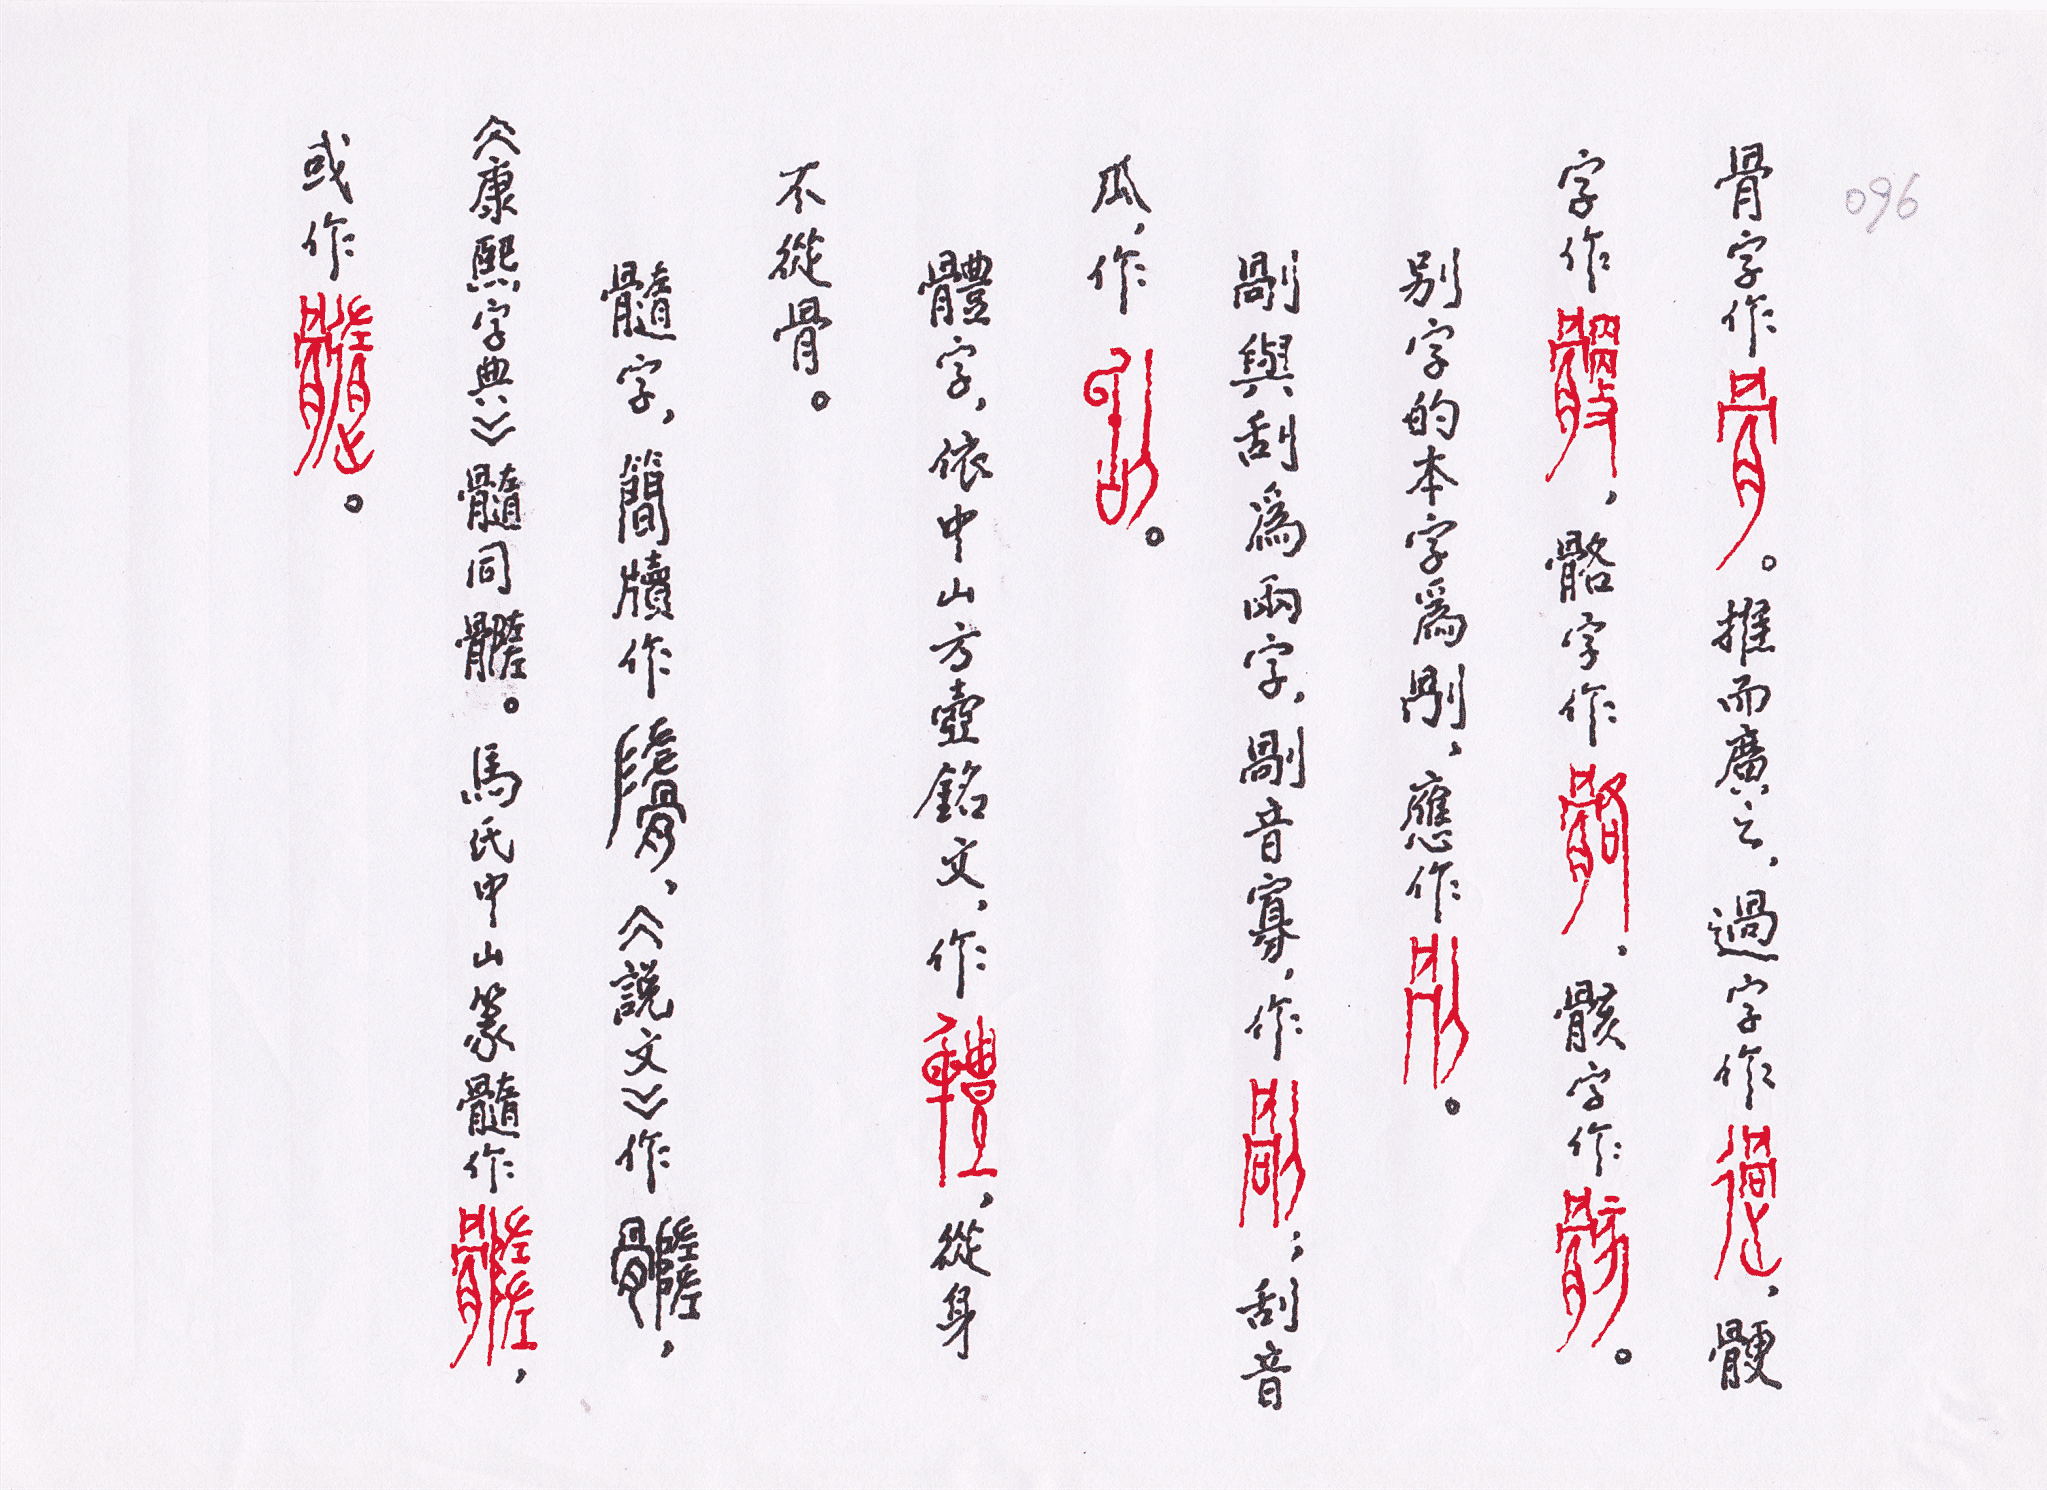 096
骨字作。推而廣之,過字作,骾
字作,骼字作,骸字作。
别字的本字爲𠛰,應作。
剮與刮爲兩字,剮音寡,作;刮音
瓜,作。
體字,依中山方壺銘文,作,從身
不從骨。
髓字,簡牘作,《説文》作,
《康熙字典》髓同䯝。馬氏中山篆髓作,
或作。